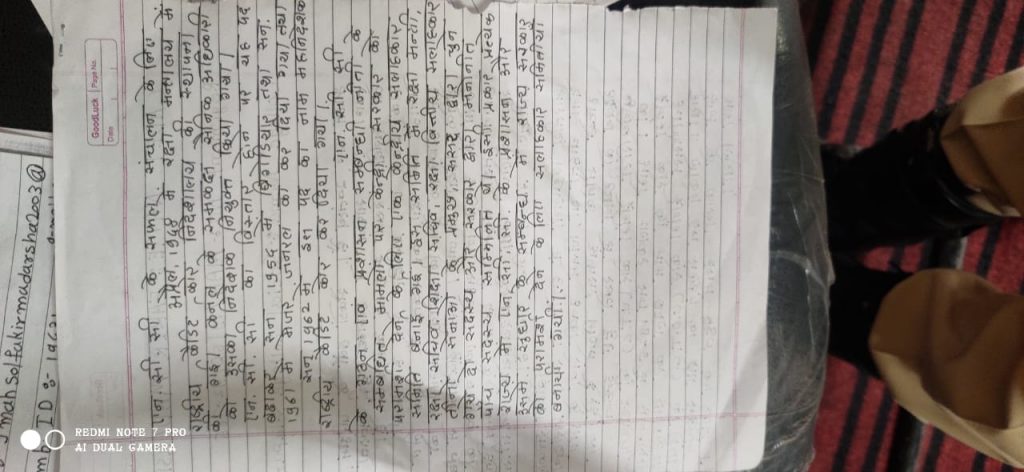 GoodLuck Page No.
Date
एन. सी. सी. के सफल संचालन के लिए
अप्रैल 1948 में रक्षा मन्त्रालय में
राष्ट्रीय कैडिट कोर निदेशालय की स्थापना
की गई। कर्नल के समकक्ष सैनिक अधिकारी
को इसका निदेशक नियुक्त किया गया।
एन. सी. सी. का विस्तार होने पर यह पद
बढाकर सन् 1954 में ब्रिगेडियर तथा सन्
1961 में मेजर जनरल का कर दिया गया तथा
सन् 1962 में इस पद का नाम महानिदेशक
राष्ट्रीय कैडिट कोर कर दिया गया।
एन. सी. सी.
के गठन एवं प्रशासन सम्बन्धी नीति के
सम्बन्धित मामलों पर केन्द्रीय सरकार को
परामर्श देने के लिए एक केन्द्रीय सलाहकार
समिति बनाई गई। इस समिति में रक्षा मन्त्री,
रक्षा सचिव, शिक्षा सचिव, रक्षा वित्तीय सलाहकार
तीनों सेनाओं के प्रमुख, संसद द्वारा चुने
गये दो सदस्य और सरकार द्वारा मनोनीत
पांच सदस्य सम्मिलित थे। इसी प्रकार प्रत्येक
राज्य में एन. सी. सी. के प्रशासन और
इसमें सुधार के सम्बन्ध में राज्य सरकार
को परामर्श देने के लिए सलाहकार समितियां
बनायी गयी।
REDMI NOTE 7 PRO
AI DUAL CAMERA